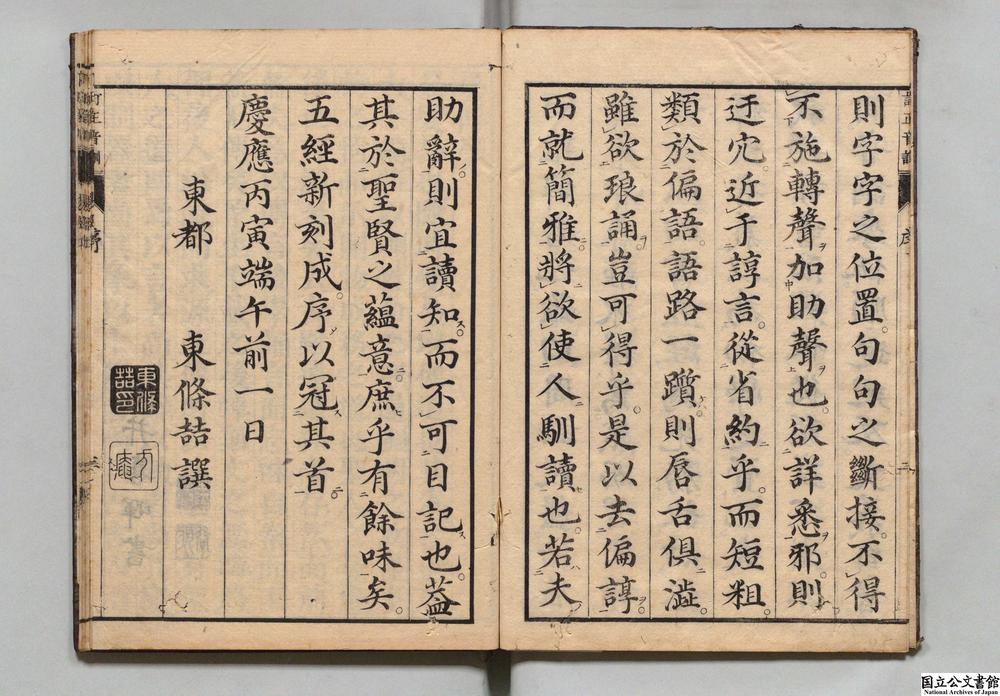 則字字之位置。句句之斷接。不得
不施轉聲加助聲也。欲詳悉邪則
迂宂近于諄言。從省約乎。而短粗
類於偏語。語路一躓則唇舌俱澁。
雖欲琅誦豈可得乎。是以去偏諄。
而就簡雅。將欲使人馴讀也。若夫
助辭則宜讀知而不可目記也。蓋
其於聖賢之蘊意庶乎有餘味矣。
五經新刻成序以冠其首。
慶應丙寅端午前一日
東都 東條喆譔
東條喆印
序
国立公文書館
National Archives of Japan